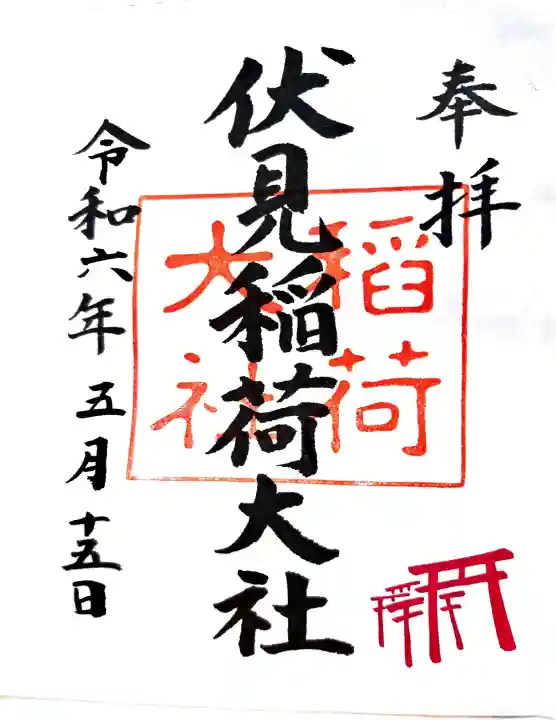 奉拝
伏見稲荷大社
稲荷
大社
令和六年五月十五日